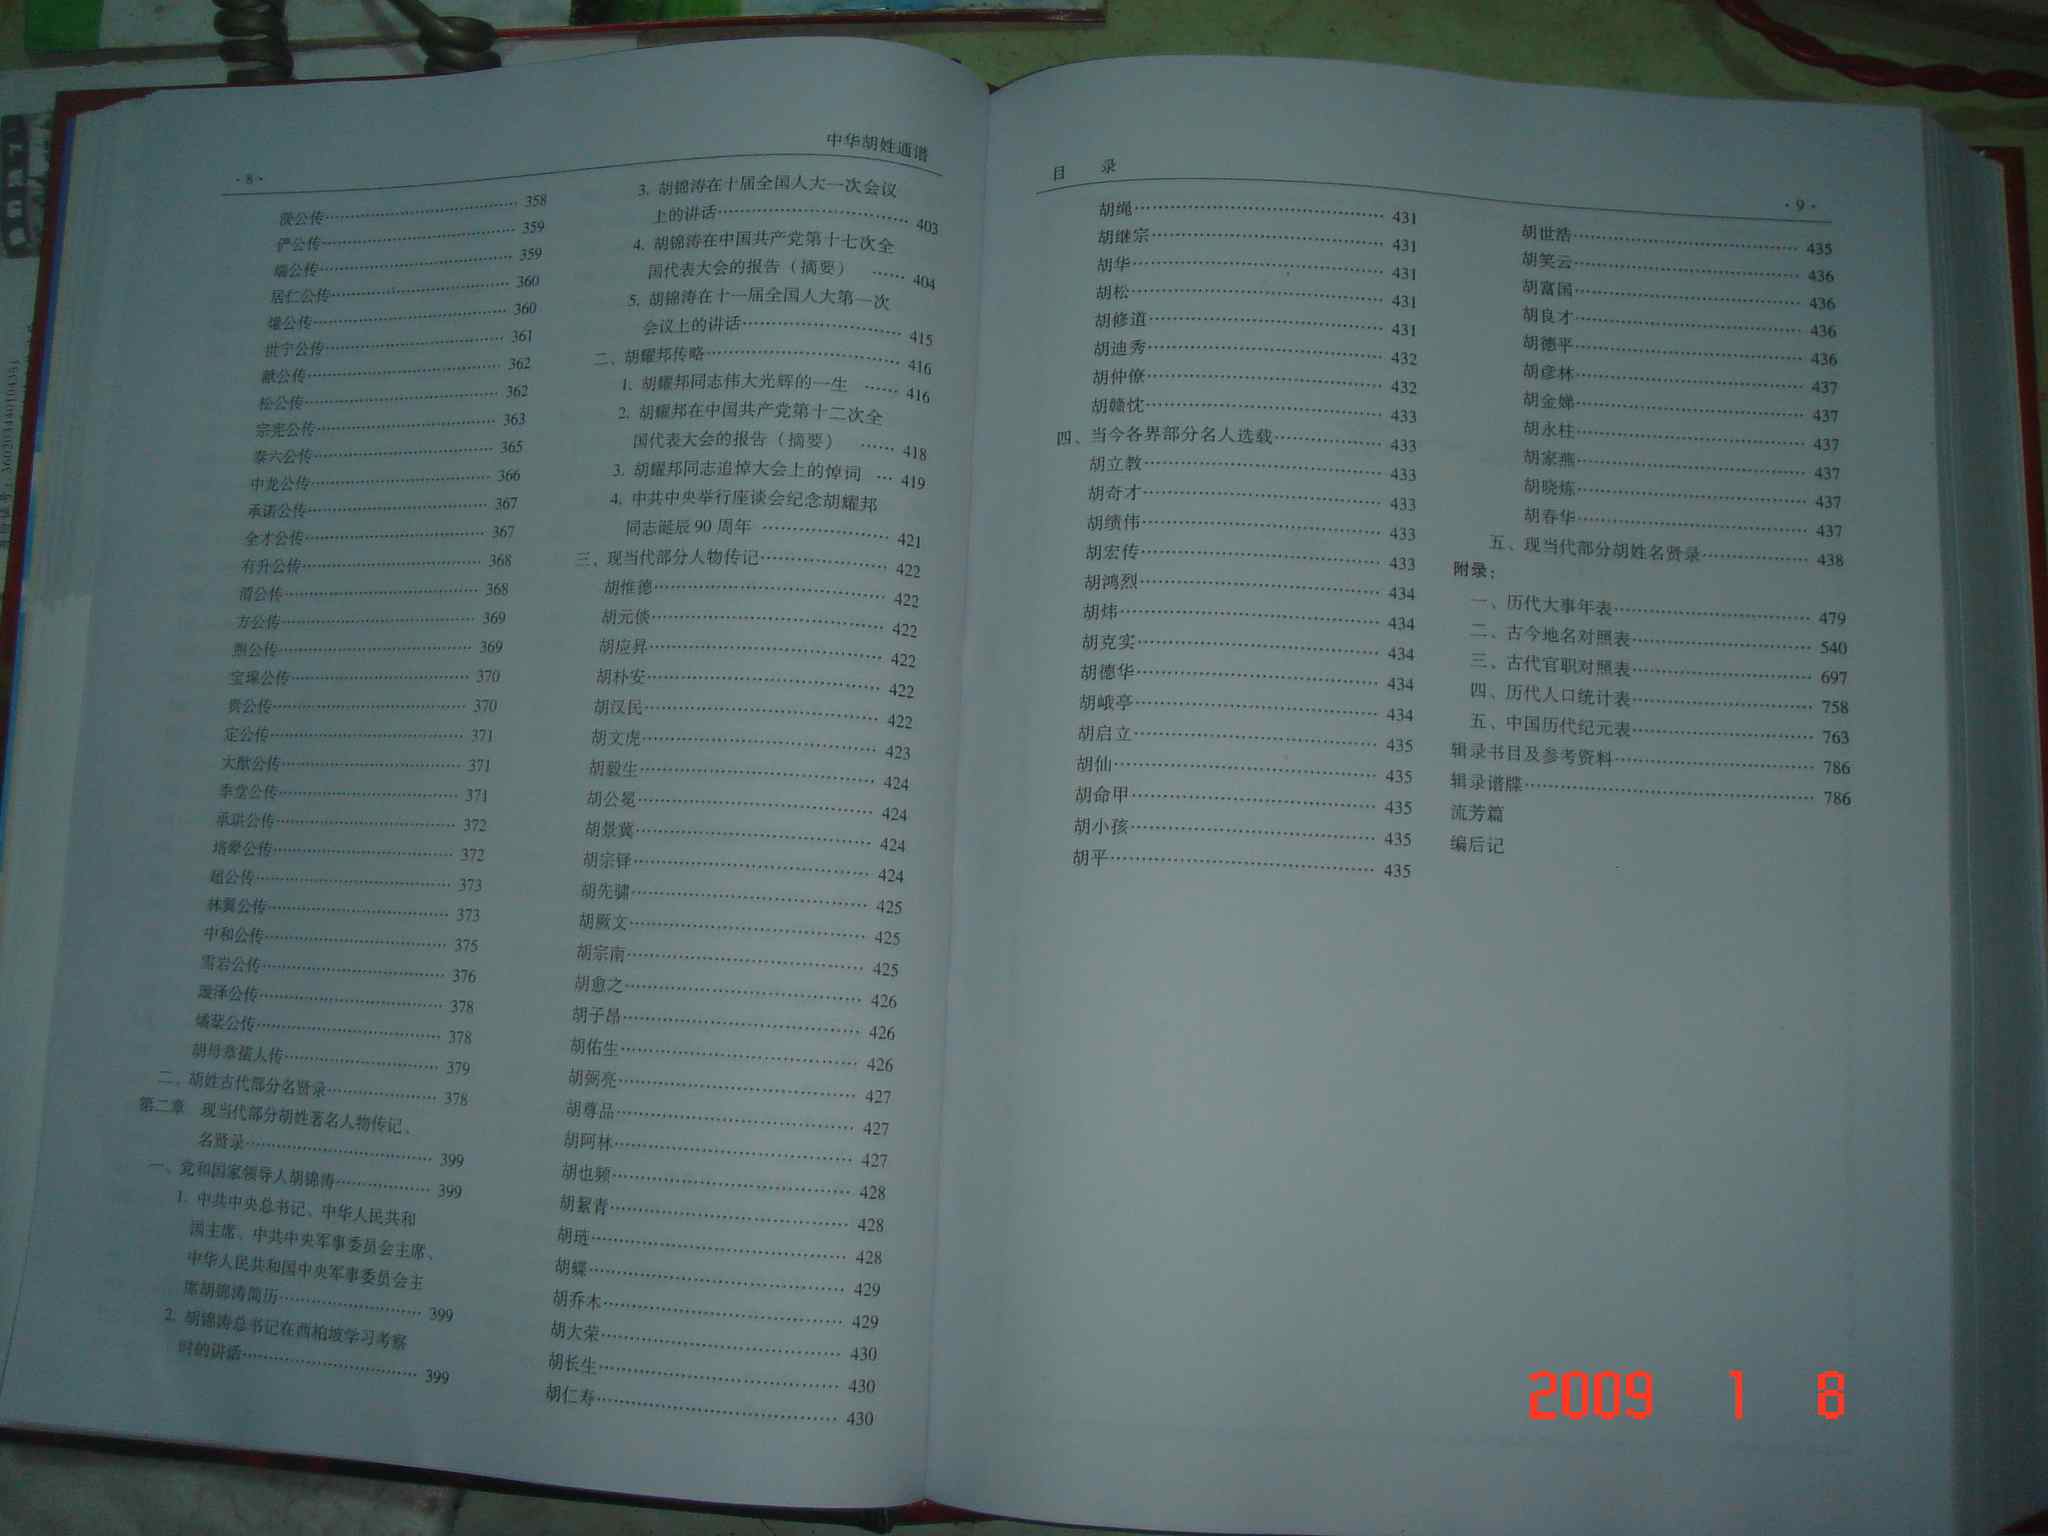 中华胡姓通谱
·8·
淡公传 358
俨公传 359
端公传 359
居仁公传 360
公传 360
世宁公传 361
献公传 362
松公传 362
宗宪公传 363
泰六公传 365
中龙公传 366
承诺公传 367
全才公传 367
有升公传 368
渭公传 368
方公传 369
熊公传 369
宝瑔公传 370
贵公传 370
定公传 371
大猷公传 371
季堂公传 371
承珙公传 372
培翚公传 372
超公传 373
林翼公传 373
中和公传 375
雪岩公传 376
公传 378
公传 378
胡母章孺人传 379
二、胡姓古代部分名贤录 378
第二章 现当代部分胡姓著名人物传记、
名贤录 399
一、党和国家领导人胡锦涛 399
1. 中共中央总书记、中华人民共和
国主席、中共中央军事委员会主席、
中华人民共和国中央军事委员会主
席胡锦涛简历 399
2. 胡锦涛总书记在西柏坡学习考察
时的讲话 399
3. 胡锦涛在十届全国人大一次会议
上的讲话 403
4. 胡锦涛在中国共产党第十七次全
国代表大会的报告（摘要） 404
5. 胡锦涛在十一届全国人大第一次
会议上的讲话 415
二、胡耀邦传略 416
1. 胡耀邦同志伟大光辉的一生 416
2. 胡耀邦在中国共产党第十二次全
国代表大会的报告（摘要） 418
3. 胡耀邦同志追悼大会上的悼词 419
4. 中共中央举行座谈会纪念胡耀邦
同志诞辰90周年 421
三、现当代部分人物传记 422
胡惟德 422
胡元倓 422
胡应昇 422
胡朴安 422
胡汉民 422
胡文虎 423
胡毅生 424
胡公冕 424
胡景冀 424
胡宗铎 424
胡先骕 425
胡厥文 425
胡宗南 425
胡愈之 426
胡子昂 426
胡佑生 426
胡弼亮 427
胡尊品 427
胡阿林 427
胡也频 428
胡絜青 428
胡琏 428
胡蝶 429
胡乔木 429
胡大荣 430
胡长生 430
胡仁寿 430
目 录
·9·
胡绳 431
胡继宗 431
胡华 431
胡松 431
胡修道 431
胡迪秀 432
胡仲僚 432
胡赣忱 433
四、当今各界部分名人选载 433
胡立教 433
胡奇才 433
胡绩伟 433
胡宏传 433
胡鸿烈 434
胡炜 434
胡克实 434
胡德华 434
胡峨亭 434
胡启立 435
胡仙 435
胡命甲 435
胡小孩 435
胡平 435
胡世浩 435
胡笑云 436
胡富国 436
胡良才 436
胡德平 436
胡彦林 437
胡金娣 437
胡永柱 437
胡家燕 437
胡晓炼 437
胡春华 437
五、现当代部分胡姓名贤录 438
附录：
一、历代大事年表 479
二、古今地名对照表 540
三、古代官职对照表 697
四、历代人口统计表 758
五、中国历代纪元表 763
辑录书目及参考资料 786
辑录谱牒 786
流芳篇
编后记
2009 1 8